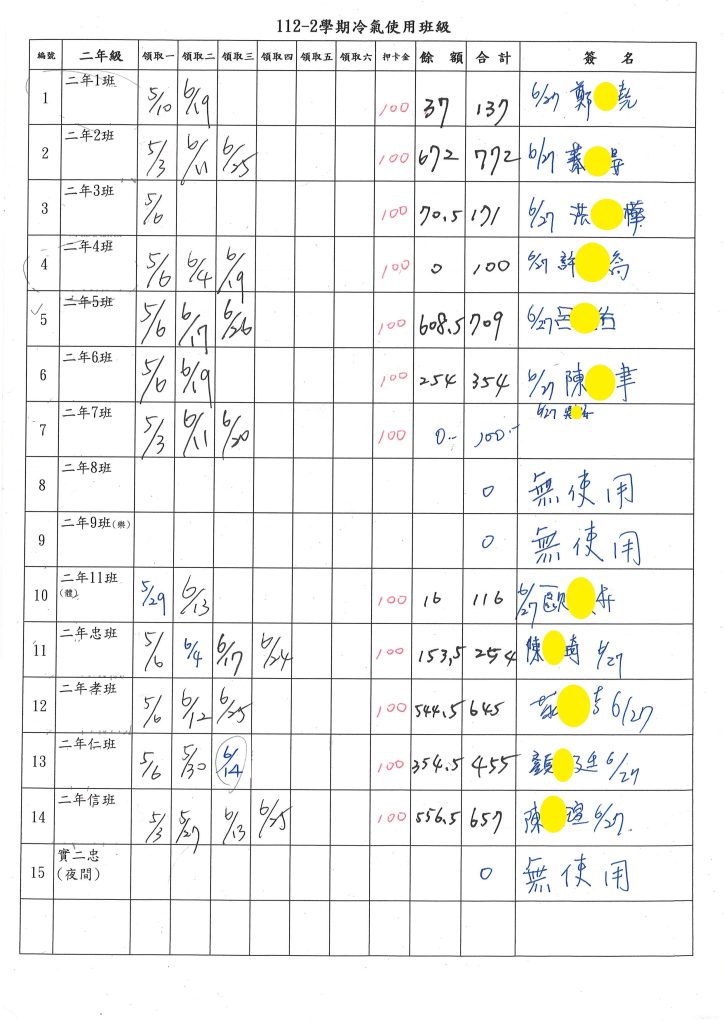 112-2學期冷氣使用班級
編號 二年級 領取一 領取二 領取三 領取四 領取五 領取六 押卡金 餘額 合計 簽名
1 二年1班 5/10 6/19 100 37 137 6/27 鄭 堯
2 二年2班 5/3 6/11 6/25 100 672 772 6/27 昇
3 二年3班 5/6 100 70.5 171 6/27 洪 樺
4 二年4班 5/6 6/4 6/19 100 0 100 6/27 許 喬
5 二年5班 5/6 6/17 6/26 100 608.5 709 6/27 呂
6 二年6班 5/6 6/19 100 254 354 6/27 陳 聿
7 二年7班 5/3 6/11 6/20 100 0.- 100.- 6/27
8 二年8班 0 無使用
9 二年9班(樂) 0 無使用
10 二年11班(體) 5/29 6/13 100 16 116 6/27 歐
11 二年忠班 5/6 6/4 6/17 6/24 100 153.5 254 陳 琦 6/27
12 二年孝班 5/6 6/12 6/25 100 544.5 645 6/27
13 二年仁班 5/6 5/30 6/14 100 354.5 455 顏 廷 6/27
14 二年信班 5/3 5/27 6/13 6/25 100 556.5 657 陳 瑄 6/27
15 實二忠(夜間) 0 無使用